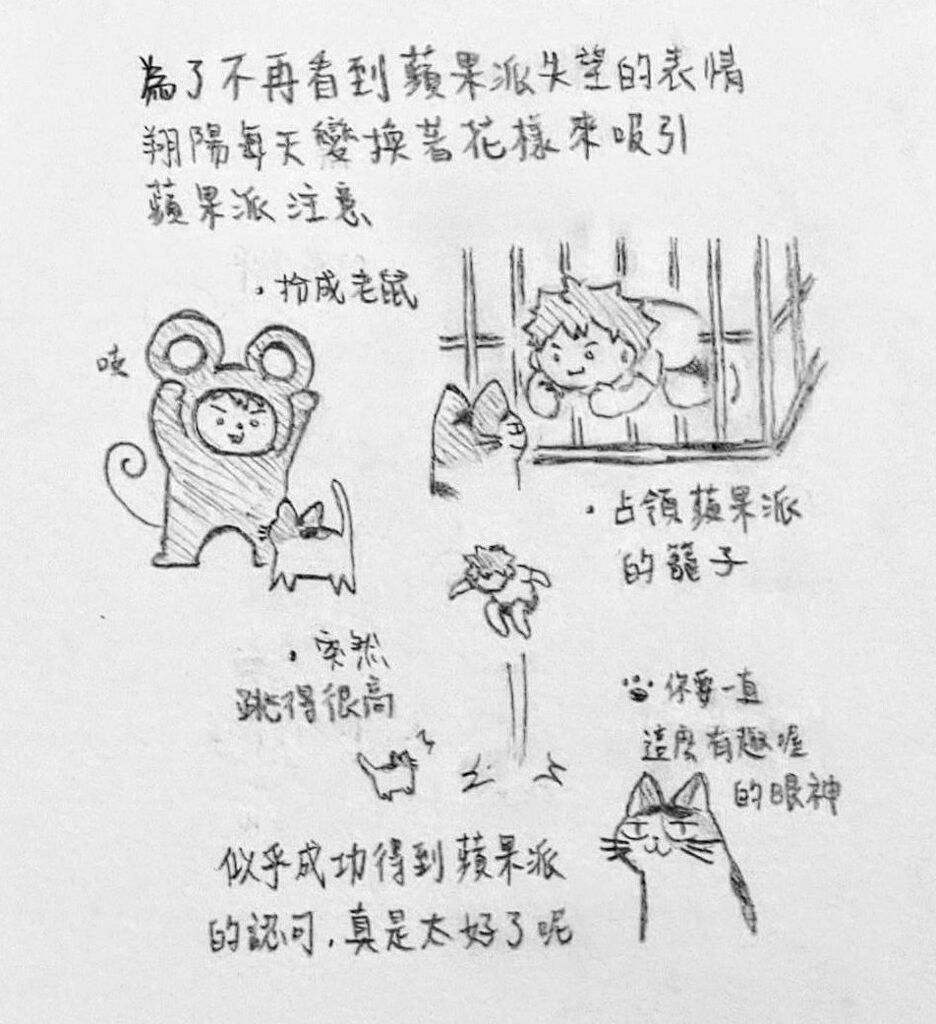 為了不再看到蘋果派失望的表情
翔陽每天變換著花樣來吸引
蘋果派注意
・扮成老鼠
・占領蘋果派
的籠子
・突然
跳得很高
你要一直
這麼有趣喔
的眼神
似乎成功得到蘋果派
的認可，真是太好了呢